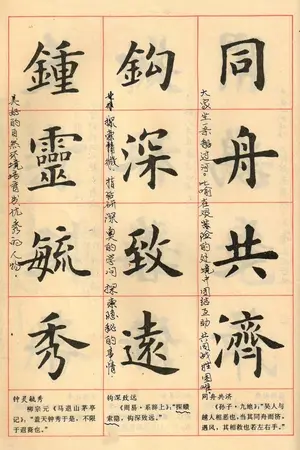 同舟共濟
大家坐一条船过河。比喻在艰险的处境中团结互助,共同战胜困难
鈎深致遠
探索精微。指钻研深奥的学问,探索隐秘的事情
鍾靈毓秀
美好的自然环境培育出优秀的人物。
同舟共济
《孙子·九地》:“吴人与
越人相恶也,当其同舟而济,
遇风,其相救也若左右手。”
钩深致远
《周易·系辞上》:“探赜
索隐,钩深致远。”
钟灵毓秀
柳宗元《马退山茅亭
记》:“盖天钟秀于是,不限
于遐裔也。”